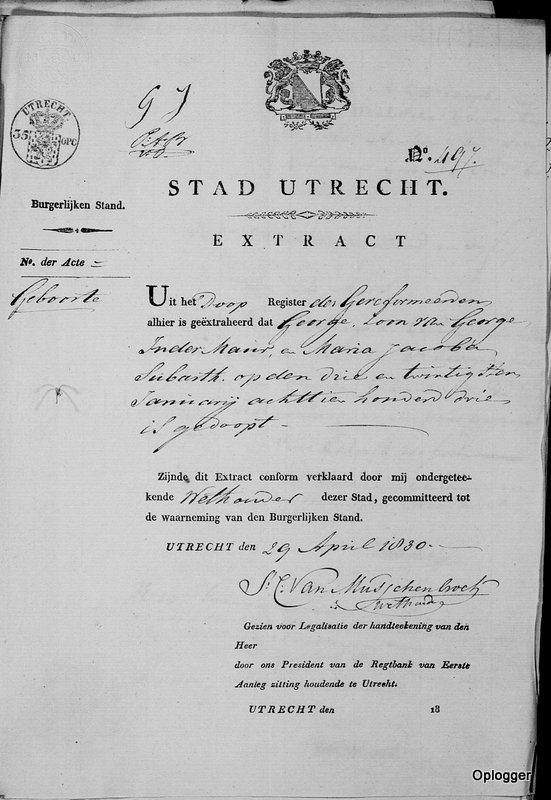 UTRECHT
35 OPC
G J
No. 497.
STAD UTRECHT.
Burgerlijken Stand.
EXTRACT
No. der Acte =
Geboorte
Uit het Doop Register der Gereformeerden
alhier is geëxtraheerd dat George, Zoon van George
Inder Maur, en Maria Jacoba
Subarth, op den drie en twintigsten
Januarij achttien honderd drie
is gedoopt -
Zijnde dit Extract conform verklaard door mij ondergetee-
kende Wethouder dezer Stad, gecommitteerd tot
de waarneming van den Burgerlijken Stand.
UTRECHT den 29 April 1830.
Van Musschenbroek
Wethouder
Gezien voor Legalisatie der handteekening van den
Heer
door ons President van de Regtbank van Eerste
Aanleg zitting houdende te Utrecht.
UTRECHT den 18
Oplogger